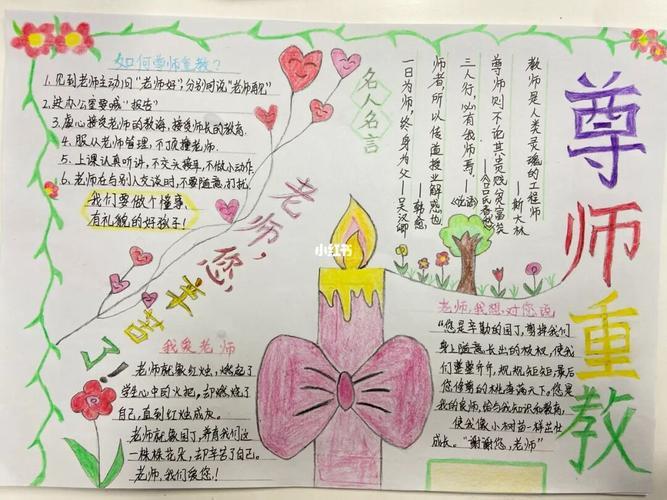 如何尊师重教?
1.见到老师主动问"老师好",分别时说"老师再见"
2.进办公室要喊"报告"
3.虚心接受老师的教诲,接受师长的教育.
4.服从老师管理,不顶撞老师.
5.上课认真听讲,不交头接耳,不做小动作.
6.老师在与别人交谈时,不要随意打扰.
我们要做个懂事,
有礼貌的好孩子!
老师,您,
辛苦了!
我爱老师
老师就像红烛,燃起了
学生心中的火把,却燃烧了
自己,直到红烛成灰。
老师就像园丁,养育我们这
一株株花朵,却辛苦了自己。
老师,我们爱您!
小红书
名人名言
教师是人类灵魂的工程师
——斯大林
尊师则不论其贵贱贫富矣
——《吕氏春秋》
三人行,必有我师焉。——《论语》
师者,所以传道授业解惑也
——韩愈
一日为师,终身为父——关汉卿
老师,我想对您说
"您是辛勤的园丁,剪掉我们
身上随意长出的枝杈,使我
们整整齐齐,规规矩矩,最后
您修剪的桃李满天下。您是
我的良师,给与我知识和教育,
使我像小树苗一样茁壮
成长。"谢谢您,老师"
尊师重教